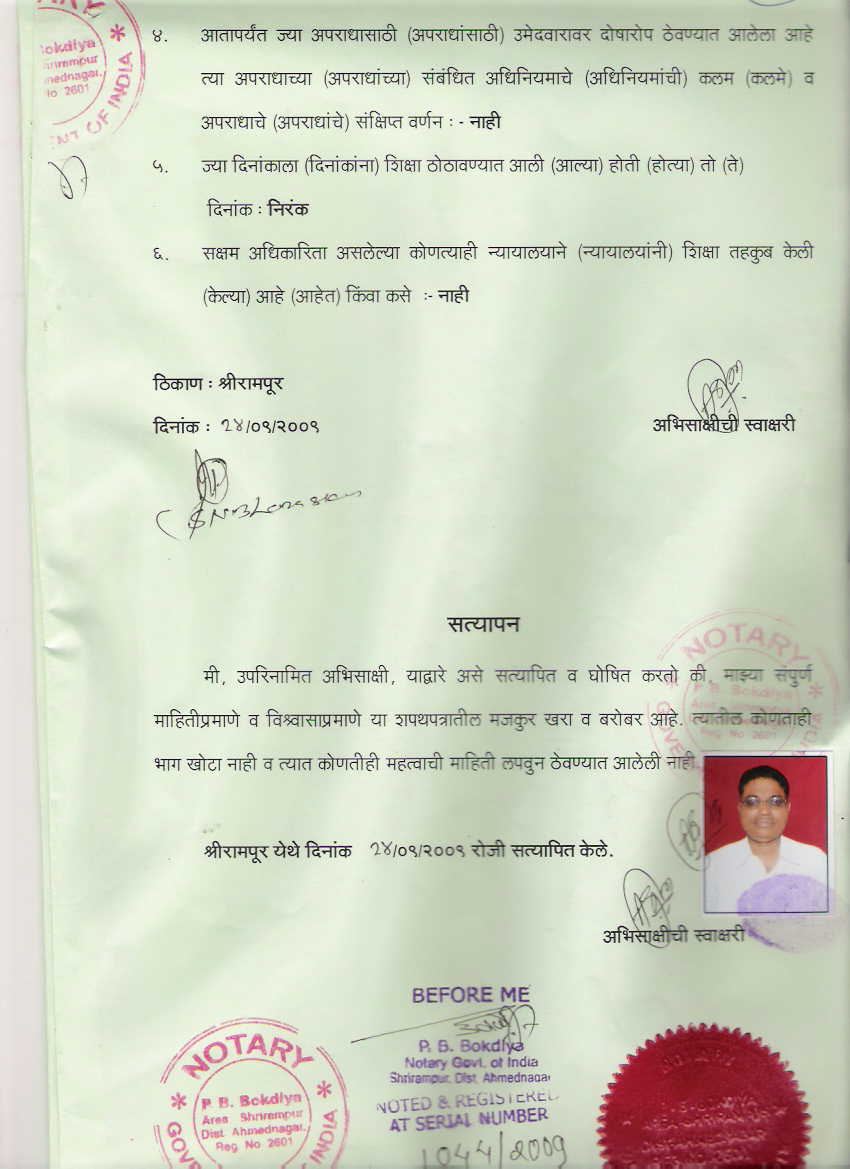 okdiya *
Shrirampur
Ahmednagar,
No 2601
NT OF INDIA
४. आतापर्यंत ज्या अपराधासाठी (अपराधांसाठी) उमेदवारावर दोषारोप ठेवण्यात आलेला आहे
त्या अपराधाच्या (अपराधांच्या) संबंधित अधिनियमाचे (अधिनियमांची) कलम (कलमे) व
अपराधाचे (अपराधांचे) संक्षिप्त वर्णन : - नाही
५. ज्या दिनांकाला (दिनांकांना) शिक्षा ठोठावण्यात आली (आल्या) होती (होत्या) तो (ते)
दिनांक : निरंक
६. सक्षम अधिकारिता असलेल्या कोणत्याही न्यायालयाने (न्यायालयांनी) शिक्षा तहकुब केली
(केल्या) आहे (आहेत) किंवा कसे :- नाही
ठिकाण : श्रीरामपूर
दिनांक : २४/०९/२००९
अभिसाक्षीची स्वाक्षरी
सत्यापन
मी, उपरिनामित अभिसाक्षी, याद्वारे असे सत्यापित व घोषित करतो की, माझ्या संपुर्ण
माहितीप्रमाणे व विश्वासाप्रमाणे या शपथपत्रातील मजकुर खरा व बरोबर आहे. त्यातील कोणताही
भाग खोटा नाही व त्यात कोणतीही महत्वाची माहिती लपवुन ठेवण्यात आलेली नाही.
NOTARY
P. B. Bokdiya
Reg No 2601
श्रीरामपूर येथे दिनांक २४/०९/२००९ रोजी सत्यापित केले.
अभिसाक्षीची स्वाक्षरी
BEFORE ME
P. B. Bokdiya
Notary Govt. of India
Shrirampur, Dist. Ahmednagar
NOTED & REGISTERED
AT SERIAL NUMBER
1044/2009
NOTARY
* P. B. Bokdiya *
Area Shrirampur
Dist. Ahmednagar,
Reg. No 2601
GOV
INDIA
NOTARY